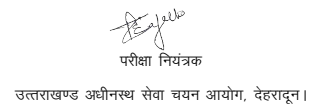 परीक्षा नियंत्रक
उत्तराखण्ड अधीनस्थ सेवा चयन आयोग, देहरादून।